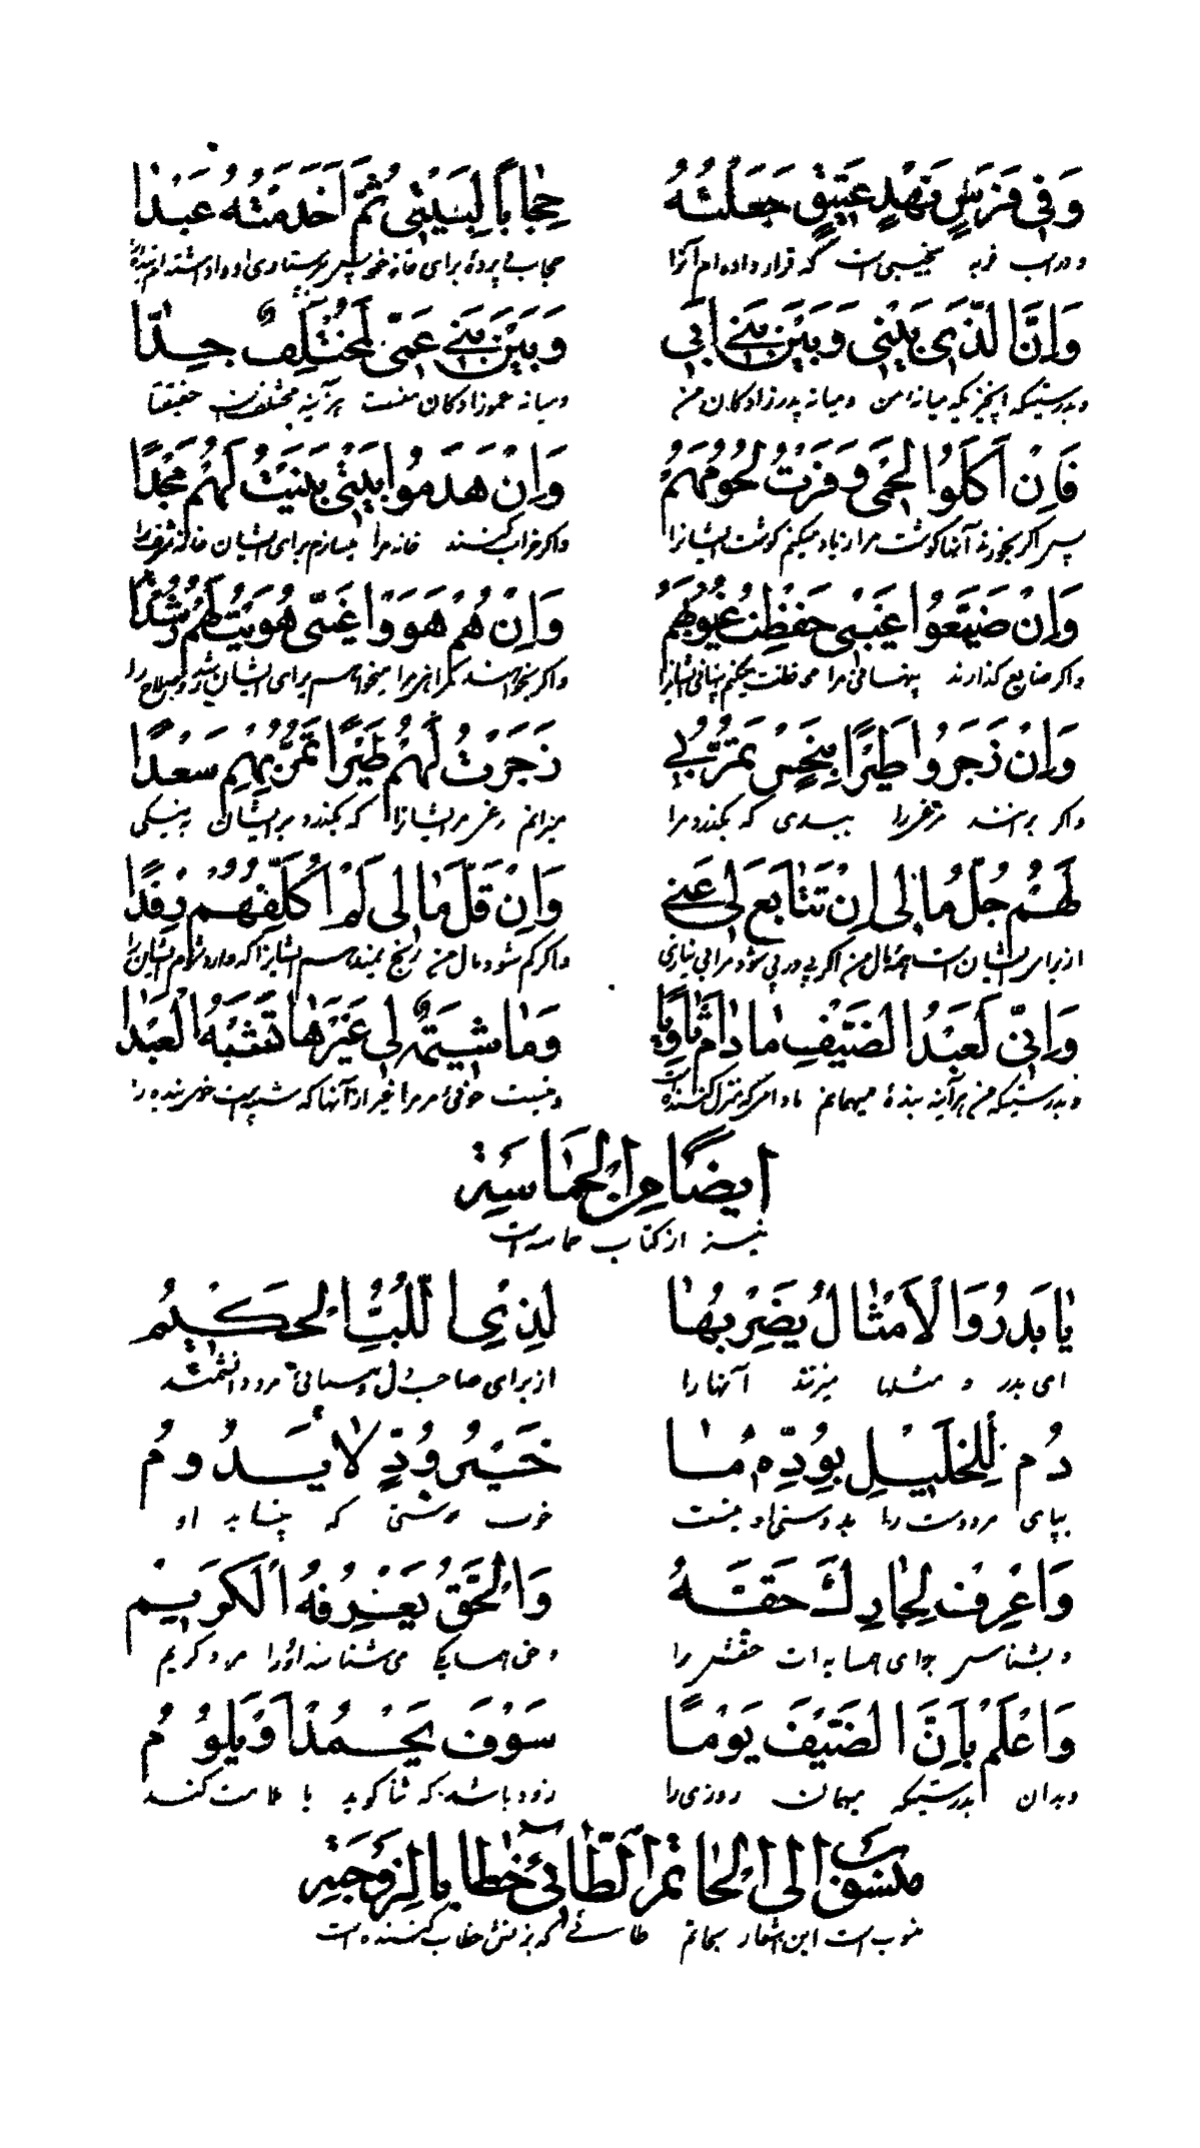 وَفِي فَرَسٍ نَهْدٍ عَتِيقٍ جَعَلْتُهُ حِجَابًا لِبَيْتِي ثُمَّ أَخْدَمْتُهُ عَبْدًا
و در اسب فربه نجیبی است که قرار داده ام آنرا حجاب و پرده برای خانه خود پس
وَاِنَّ الَّذِي بَيْنِي وَبَيْنَ بَنِي اَبِي وَبَيْنَ بَنِي عَمِّي لَمُخْتَلِفٌ جِدًّا
و بدرستیکه آنچیزیکه میانه من و میانه پدرزادگان من و میانه عموزادگان منست هرآینه مختلف است حقیقتا
فَاِنْ اَكَلُوا لَحْمِي وَفَرْتُ لُحُومَهُمْ وَاِنْ هَدَمُوا بَيْتِي بَنَيْتُ لَهُمْ مَجْدًا
پس اگر بخورند آنها گوشت مرا زیاد میکنم گوشت ایشانرا و اگر خراب کنند خانه مرا میسازم برای ایشان خانه شرف را
وَاِنْ ضَيَّعُوا غَيْبِي حَفِظْتُ غُيُوبَهُمْ وَاِنْ هُمْ هَوَوْا غَيِّي هَوِيتُ لَهُمْ رُشْدًا
و اگر ضایع گذارند پنهانی مرا محافظت میکنم پنهانی ایشانرا و اگر بخواهند گمراهی مرا میخواهم برای ایشان رشد و صلاح را
وَاِنْ زَجَرُوا طَيْرًا بِنَحْسٍ تَمُرُّ بِي زَجَرْتُ لَهُمْ طَيْرًا تَمُرُّ بِهِمْ سَعْدًا
و اگر برانند مرغیرا ببدی که بگذرد مرا میرانم مرغی مر ایشانرا که بگذرد بر ایشان به نیکی
لَهُمْ جُلُّ مَالِي اِنْ تَتَابَعَ لِي غِنًى وَاِنْ قَلَّ مَالِي لَمْ اُكَلِّفْهُمْ رِفْدًا
از برای ایشان است مال من اگر پی در پی شود مرا بی نیازی و اگر کم شود مال من رنج نمیدهم ایشانرا
وَاِنِّي لَعَبْدُ الضَّيْفِ مَا دَامَ ثَاوِيًا وَمَا شِيمَةٌ لِي غَيْرَهَا تَشْبَهُ الْعَبْدَا
و بدرستیکه من هرآینه بنده میهمانم مادامیکه منزل کننده است و نیست خوئی مر مرا غیر از آنها که شبیه است بنده را
اَيضًا مِنَ الْحَمَاسَةِ
نیز از کتاب حماسه است
يَا بَدْرُ وَالْاَمْثَالُ يَضْرِبُهَا لِذِي اللُّبِّ الْحَكِيمُ
ای بدر و مثلها میزند آنها را از برای صاحب دل مرد دانشمند
دُمْ لِلْخَلِيلِ بِوُدِّهِ مَا خَيْرُ وُدٍّ لَا يَدُومُ
بپای مر دوست را بدوستی او نیست خوب دوستی که نپاید او
وَاعْرِفْ لِجَارِكَ حَقَّهُ وَالْحَقُّ يَعْرِفُهُ الْكَرِيمُ
و بشناس برای همسایه ات حقش را و حق همسایگی میشناسد او را مرد کریم
وَاعْلَمْ بِاَنَّ الضَّيْفَ يَوْمًا سَوْفَ يَحْمَدُ اَوْ يَلُومُ
و بدان بدرستیکه میهمان روزی را زود باشد که ثنا گوید یا ملامت کند
منسوب اِلَى الْحَاتِمِ الطَّائِيِّ خِطَابًا لِزَوْجَتِهِ
منسوب است این اشعار بحاتم طائی که بزنش خطاب کننده است